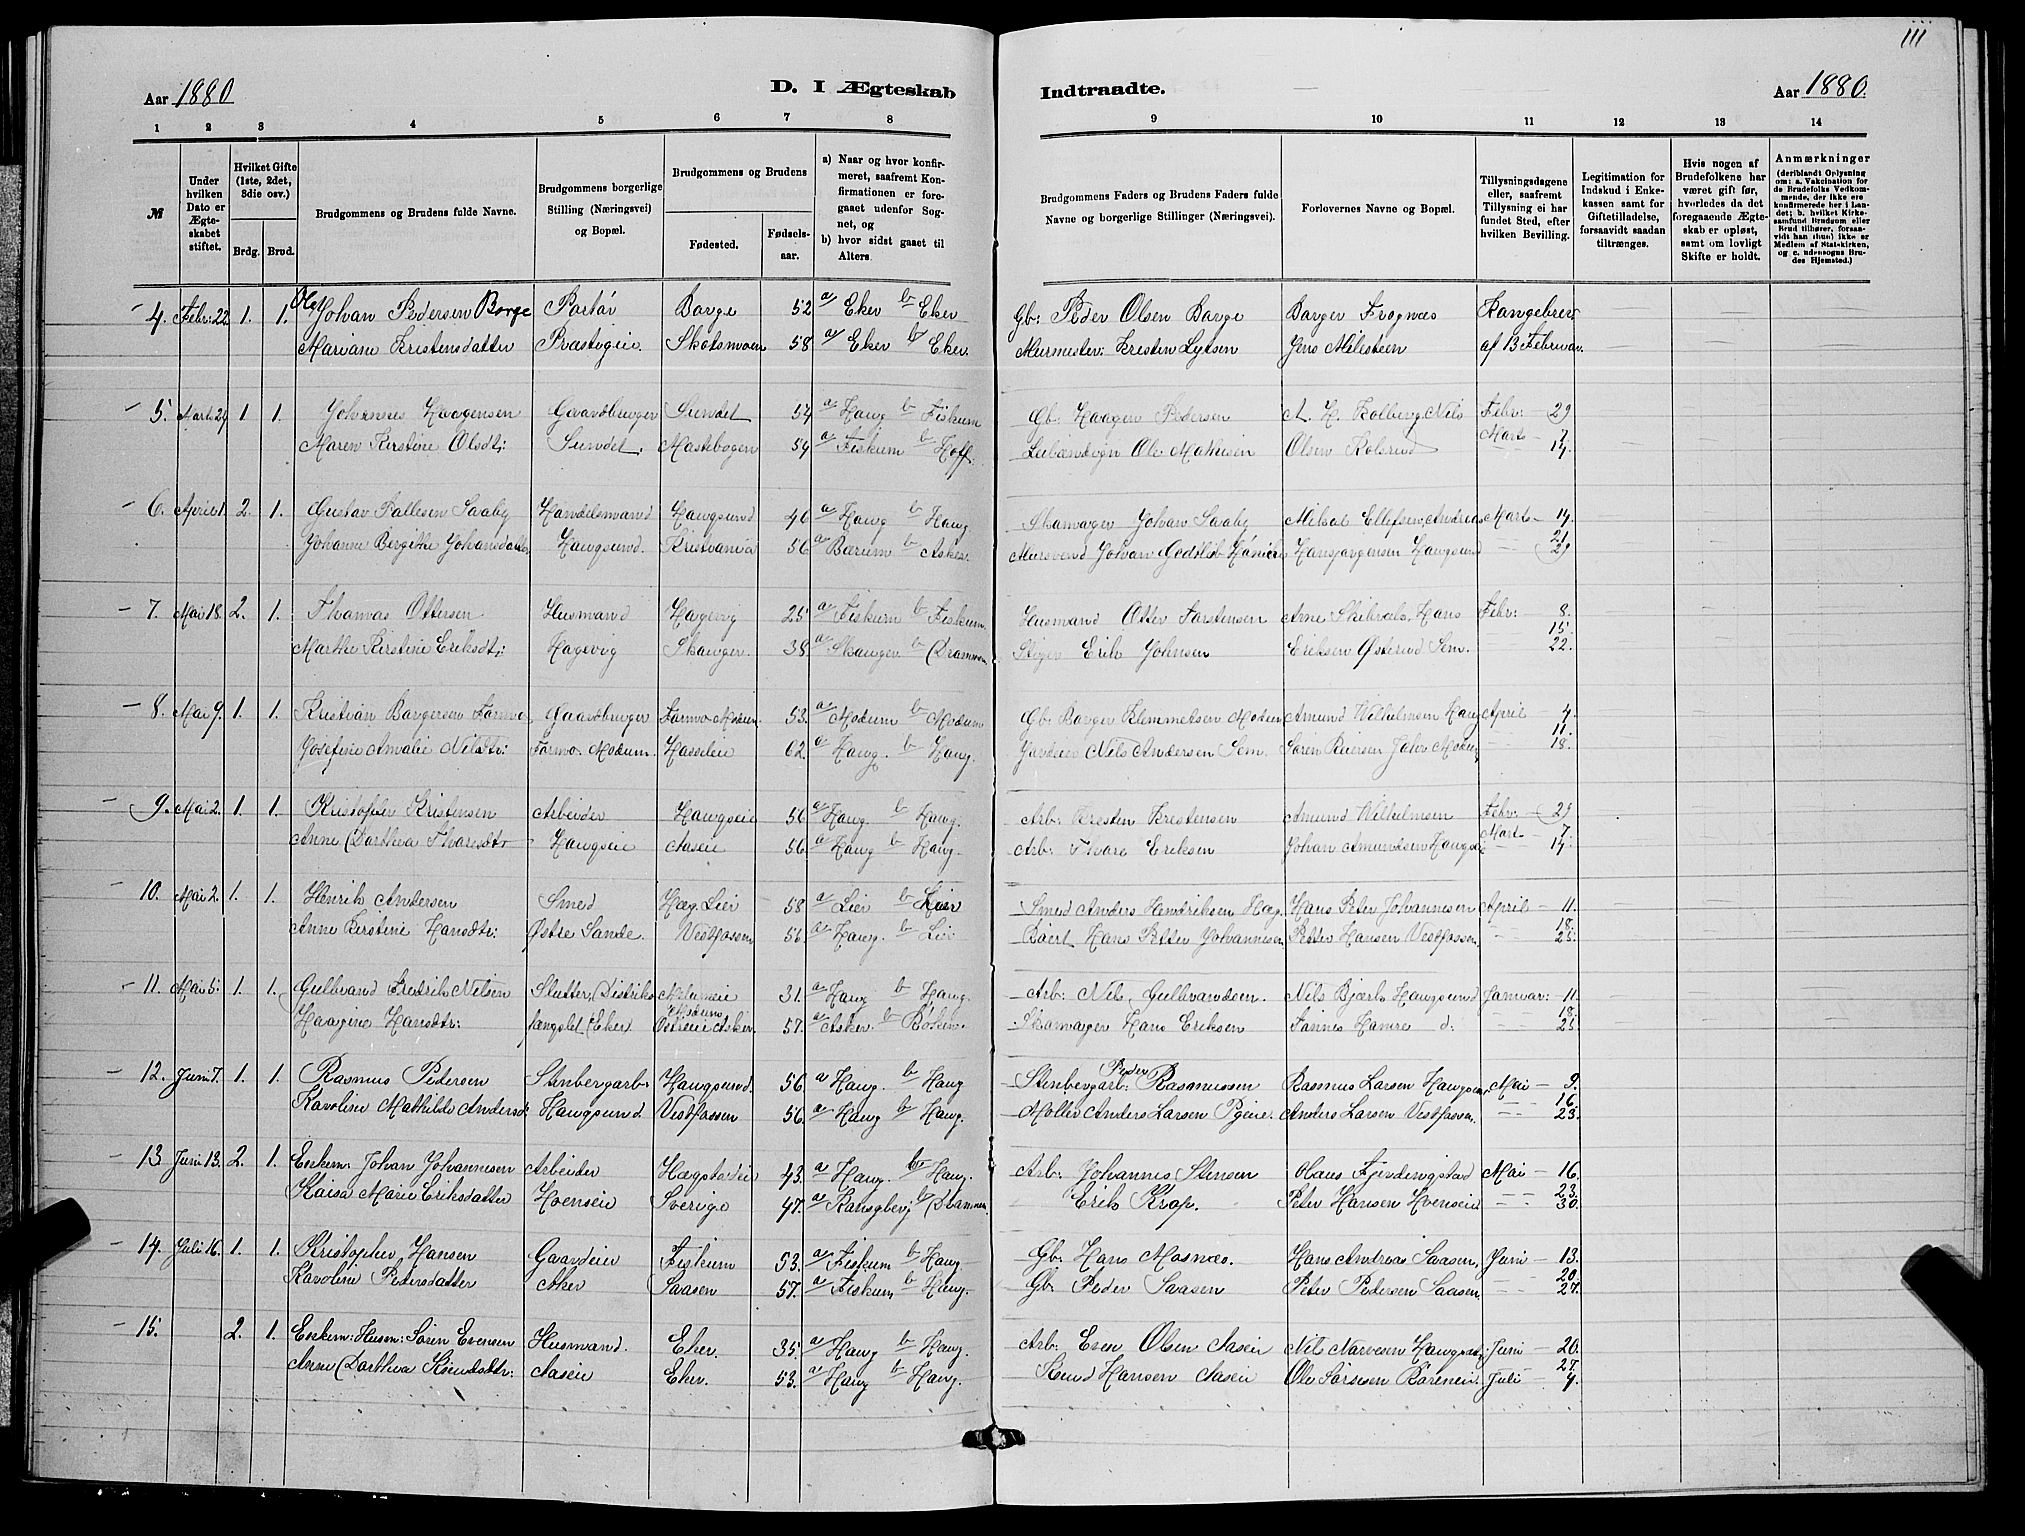 111
Aar 1880
D. I Ægteskab
Indtraadte.
Aar 1880.
1 2 3 4 5 6 7 8
9 10 11 12 13 14
№
Under hvilken Dato er Ægteskabet stiftet.
Hvilket Gifte (1ste, 2det, 3die osv.)
Brdg. Brud.
Brudgommens og Brudens fulde Navne.
Brudgommens borgerlige Stilling (Næringsvei) og Bopæl.
Brudgommens og Brudens
Fødested. Fødselsaar.
a) Naar og hvor konfirmeret, saafremt Konfirmationen er foregaaet udenfor Sognet, og
b) hvor sidst gaaet til Alters.
Brudgommens Faders og Brudens Faders fulde Navne og borgerlige Stillinger (Næringsvei).
Forlovernes Navne og Bopæl.
Tillysningsdagene eller, saafremt Tillysning ei har fundet Sted, efter hvilken Bevilling.
Legitimation for Indskud i Enkekassen samt for Giftetilladelse, forsaavidt saadan tiltrænges.
Hvis nogen af Brudefolkene har været gift før, hvorledes da det foregaaende Ægteskab er opløst, samt om lovligt Skifte er holdt.
Anmærkninger (deriblandt Oplysning om: a. Vakcination for de Brudefolks Vedkommende, der ikke ere konfirmerede her i Landet; b. hvilket Kirkesamfund Brudgom eller Brud tilhører, forsaavidt han (hun) ikke er Medlem af Statskirken, og c. udensogns Brudes Hjemsted.)
4. Febr: 22 1. 1. Ole Johan Pedersen Borge Borge 52 a Eker b Eker Gb: Peder Olsen Borge
Mariane Kristensdatter Præstegeie. Skotsmoen 58 a Eker b Eker. Murmester: Kresten Jens Milesteen af 13 Februar.
5. Marts 29 1 1. Johannes Haagensen Gaardbruger Sundet 54 a Haug b Fiskum Gb. Haagen Pedersen Nils Febr: 29
Maren Kirstine Olsdt: Sundet. Mastebogen 54 a Fiskum b Hoff. Ole Mathisen Olsen Kolsrud Marts 7 14.
6. April 1. 2. 1. Gustav Pallesen Saaby Handelsmand Haugsund 46 a Haug b Haug Skomager Johan Saaby Mikal Ellefsen, Andreas Mart 14
Johanne Bergitte Johansdatter Haugsund. Kristiania 56 a Bærum b Asker. Johan Gottlib Hansjørgensen Haugsund 21 29
7. Mai 18. 2. 1. Thomas Ottersen Husmand Hagevig 25 a Fiskum b Fiskum. Husmand Otter Torstensen Arne Hans Febr: 8.
Marthe Kirstine Eriksdt: Hagevig Skauger 38 a Skauger b Drammen Stiger Erik Johnsen Eriksen Østerud Sem. 15. 22.
8. Mai 9. 1. 1. Kristian Borgersen Farmo Gaardbruger Farmo Modum 53. a Modum b Modum Gb: Borger Klemmetsen Modum Amund Wilhelmsen Haug April 4.
Josefine Amalie Nilsdtr: Farmo. Modum. 62. a Haug. b Haug. Nils Andersen Sem. Søren Modum 11. 18.
9. Mai 2. 1. 1. Kristoffer Kristensen Arbeider Haugseie 56 a Haug. b Haug. Arb: Kresten Krestensen Amund Wilhelmsen Febr: 29
Anne Dorthea Thoresdtr Haugseie Aaseie 56. a Haug b Haug. Arb: Thore Eriksen Johan Amundsen Haugseie Mart 7 14.
10. Mai 2. 1. 1. Henrik Andersen Smed Hæg. Lier 58 a Lier b Lier Smed Anders Hendriksen Hæg. Hans Peter Johannesen April 11.
Anne Kirstine Hansdtr: Østre Sande. Vestfossen 56 a Haug. b Lier Hans Petter Johannesen Petter Hansen Vestfossen. 18. 25.
11. Mai 5. 1. 1. Gulbrand Fredrik Nilsen Slutter, Distrikts 31. a Haug b Haug. Arb: Nils Gulbrandsen. Nils Bjerk Haugsund Januar: 11.
Haagine Hansdtr: fængslet Eker Østreeie Asker. 57. a Asker. b Skomager Hans Eriksen Hamre d: 18. 25
12. Juni 7. 1. 1. Rasmus Pedersen Stenbergarb: Haugsund. 56 a Haug. b Haug Stenbergarb: Peder Rasmussen Rasmus Larsen Haugsund Mai 9.
Karoline Mathilde Andersd Haugsund. Vestfossen 56. a Haug b Haug. Møller Anders Larsen Anders Larsen Vestfossen. 16 23.
13 Juni 13. 2. 1. Enkem: Johan Johannesen Arbeider Hægstadeie 43. a Haug. b Haug. Arb: Johannes Stensen Olaus Fjerdingstad Mai 16
Kaisa Marie Eriksdatter Hoenseie Sverige 47. a Kongsberg b Drammen. Erik Krop. Peter Hansen Hoenseie 23. 30.
14. Juli 16. 1. 1. Kristopher Hansen Gaardeier Fiskum 53. a Fiskum b Haug Gb: Hans Mosnæs. Hans Andreas Saasen, Juni 13.
Karoline Pedersdatter Aker Saasen 57. a Fiskum b Haug. Gb: Peder Saasen Peter Pedersen Saasen. 20. 27.
15. 2. 1. Enkem: Husm: Søren Evensen Husmand. Eker. 35. a Haug b Haug. Arb: Even Olsen Aaseie Nils Narvesen Juni 20.
Anne Dorthea Knudsdtr: Aaseie Eker. 53. a Haug b Haug. Knud Hansen Aaseie Ole Juli 27. 4.